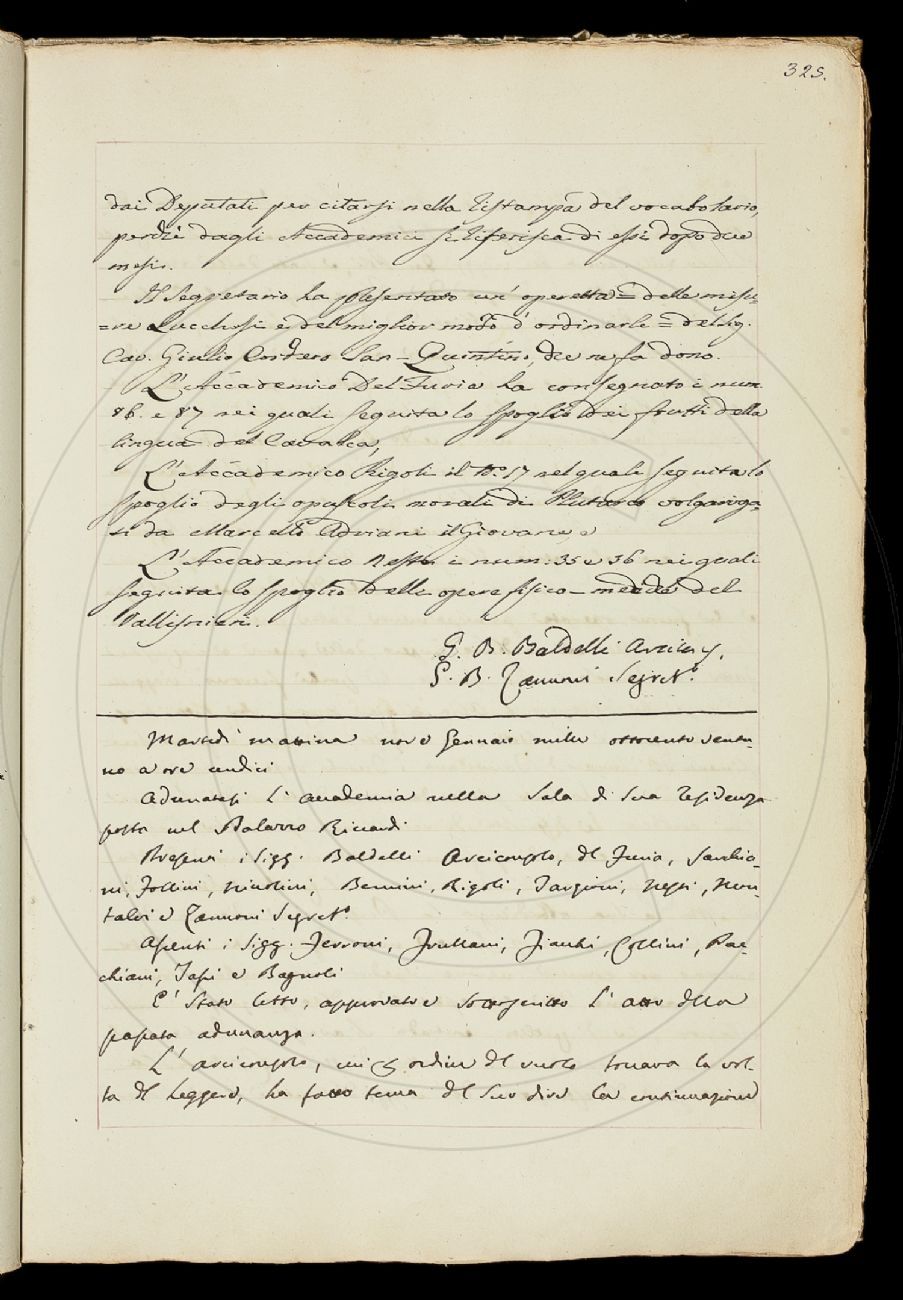 325.
dai Deputati per citarsi nella ristampa del vocabolario,
perchè dagli Accademici si riferisca di essi dopo due
mesi.
Il Segretario ha presentato un' operetta = delle misu-
=re Lucchesi e del miglior modo d'ordinarle = del Sig.
Cav. Giulio Cordero San-Quintino, che ne fa dono.
L'Accademico Del Furia ha consegnato i num.
86. e 87 nei quali seguita lo spoglio dei frutti della
lingua del Cavalca,
L'Accademico Rigoli il N.° 57 nel quale seguita lo
spoglio degli opuscoli morali di Plutarco volgarizza-
ti da Marcello Adriani il Giovane, e
L'Accademico Nesti i num: 35 e 36 nei quali
seguita lo spoglio delle opere fisico-mediche del
Vallisnieri.
G. B. Baldelli Arcicons.
G. B. Zannoni Segret.°
Martedì mattina nove Gennaio mille ottocento ventu-
no a ore undici
Adunatasi l'accademia nella Sala di Sua residenza
posta nel Palazzo Riccardi
Presenti i Sigg. Baldelli Arciconsolo, del Furia, Sarchia-
ni, Follini, Niccolini, Bencini, Rigoli, Targioni, Nesti, Mon-
talvi e Zannoni Segret.°
Assenti i Sigg. Ferroni, Frullani, Fiacchi, Collini, Pac-
chiani, Tassi e Bagnoli
E' stato letto, approvato e sottoscritto l'atto della
passata adunanza.
L'arciconsolo, cui per ordine del ruolo toccava la vol-
ta del leggere, ha fatto tema del suo dire la continuazione